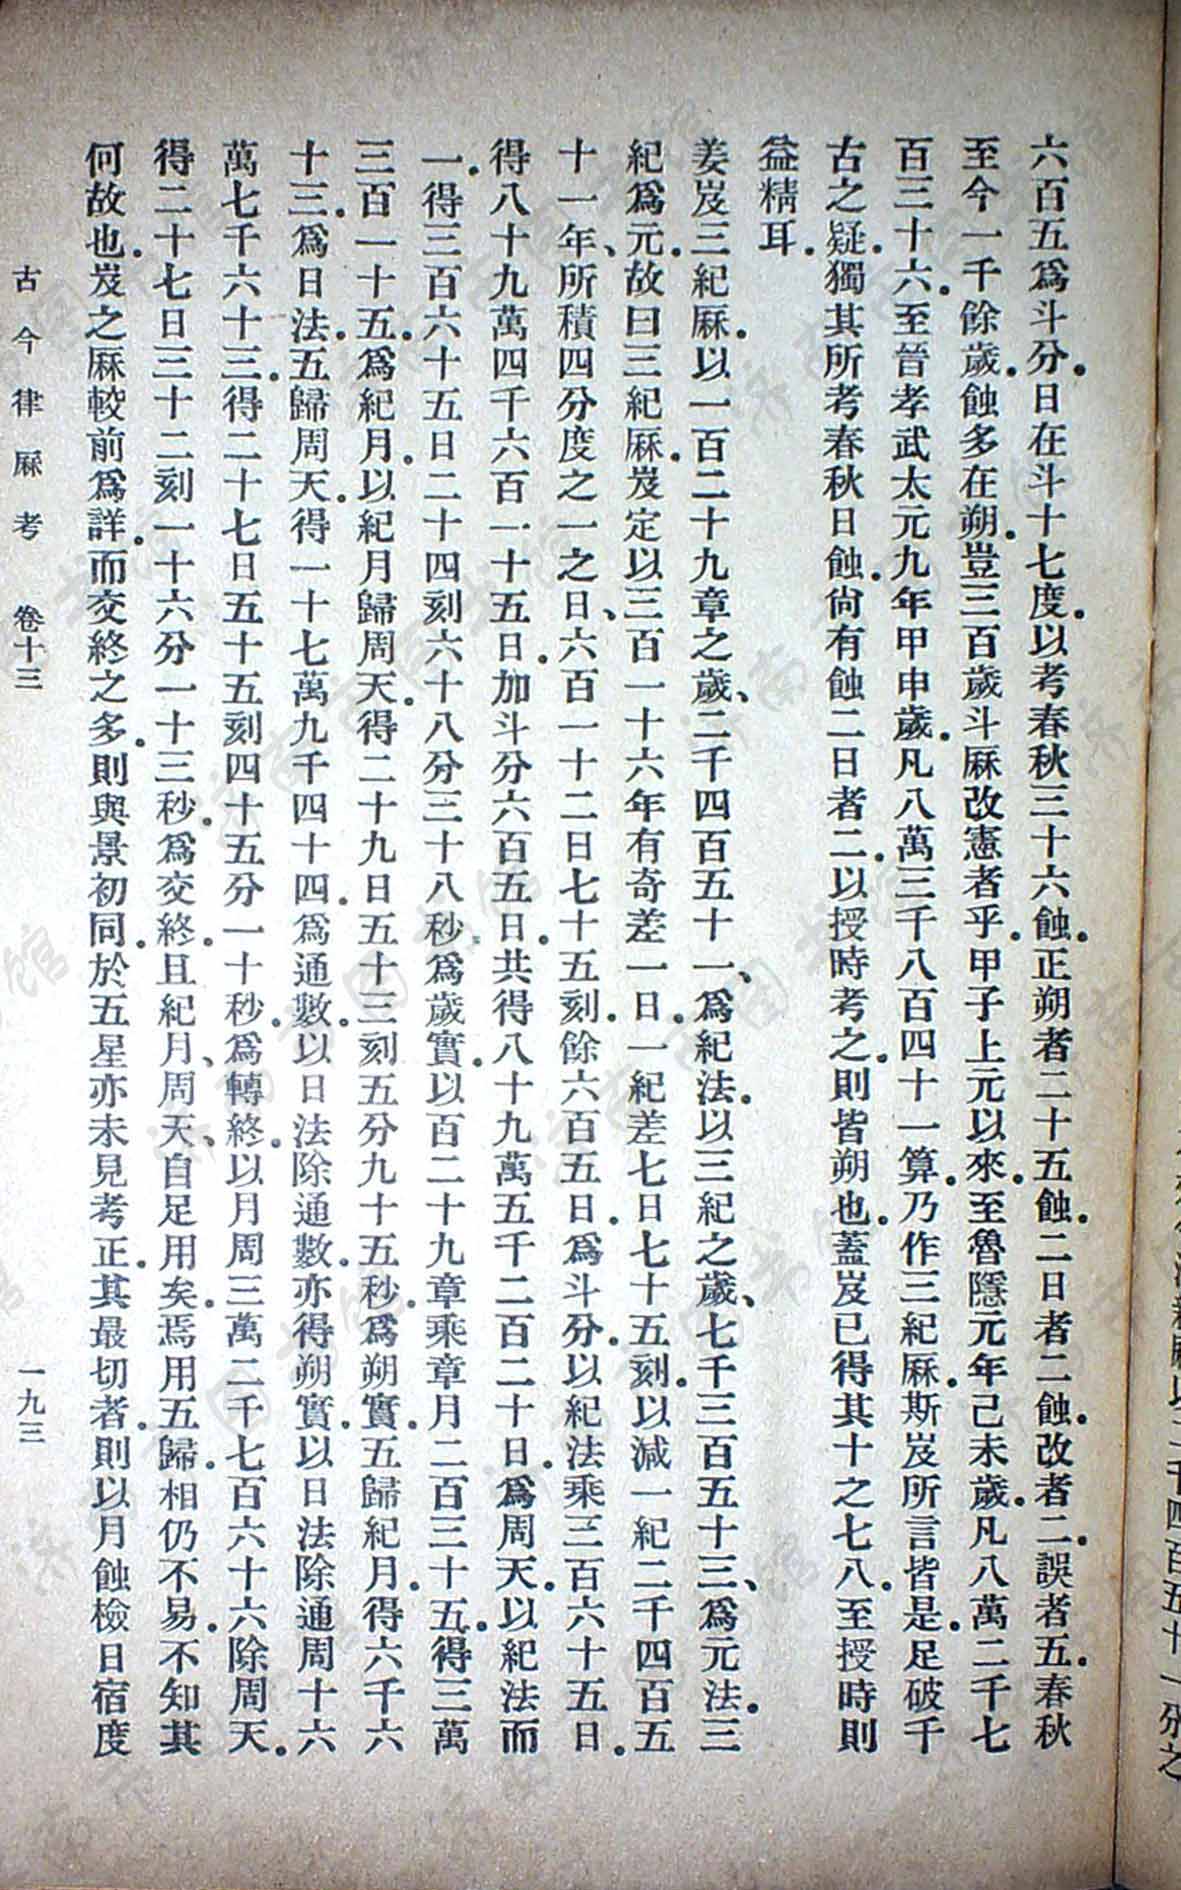 六百五爲斗分。日在斗十七度。以考春秋三十六蝕。正朔者二十五蝕。二日者二蝕。改者二。誤者五。春秋
至今一千餘歲。蝕多在朔。豈三百歲斗厤改憲者乎。甲子上元以來。至魯隱元年己未歲。凡八萬二千七
百三十六。至晉孝武太元九年甲申歲。凡八萬三千八百四十一算。乃作三紀厤。斯岌所言皆是。足破千
古之疑。獨其所考春秋日蝕。尙有蝕二日者二。以授時考之。則皆朔也。蓋岌已得其十之七八。至授時則
益精耳。
姜岌三紀厤。以一百二十九章之歲、二千四百五十一、爲紀法。以三紀之歲、七千三百五十三、爲元法。三
紀爲元。故曰三紀厤。岌定以三百一十六年有奇差一日。一紀差七日七十五刻。以減一紀二千四百五
十一年、所積四分度之一之日、六百一十二日七十五刻。餘六百五日。爲斗分。以紀法乘三百六十五日。
得八十九萬四千六百一十五日。加斗分六百五日。共得八十九萬五千二百二十日。爲周天。以紀法而
一。得三百六十五日二十四刻六十八分三十八秒。爲歲實。以百二十九章乘章月二百三十五。得三萬
三百一十五。爲紀月。以紀月歸周天。得二十九日五十三刻五分九十五秒。爲朔實。五歸紀月。得六千六
十三。爲日法。五歸周天。得一十七萬九千四十四。爲通數。以日法除通數。亦得朔實。以日法除通周十六
萬七千六十三。得二十七日五十五刻四十五分一十秒。爲轉終。以月周三萬二千七百六十六除周天。
得二十七日三十二刻一十六分一十三秒。爲交終。且紀月、周天、自足用矣。焉用五歸。相仍不易。不知其
何故也。岌之厤較前爲詳。而交終之多。則與景初同。於五星亦未見考正。其最切者。則以月蝕檢日宿度
古今律厤考　卷十三　一九三